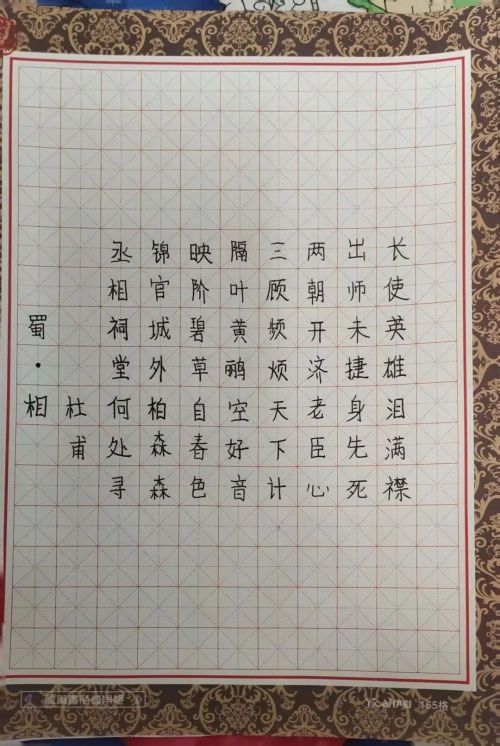 蜀·相
杜甫
丞相祠堂何处寻
锦官城外柏森森
映阶碧草自春色
隔叶黄鹂空好音
三顾频烦天下计
两朝开济老臣心
出师未捷身先死
长使英雄泪满襟
165格